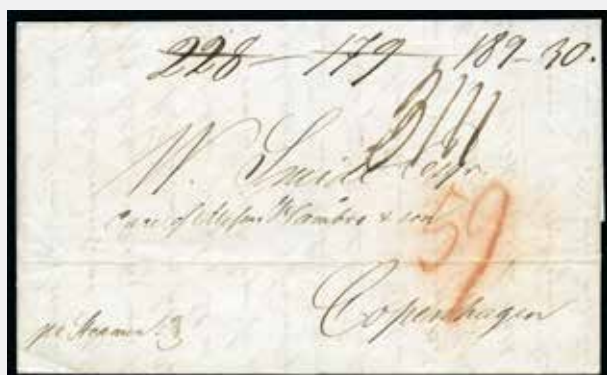 228 - 179 189-30.
W. Smith Esqr.
care of Messrs Hambro & son
59
Copenhagen
pr Steamer